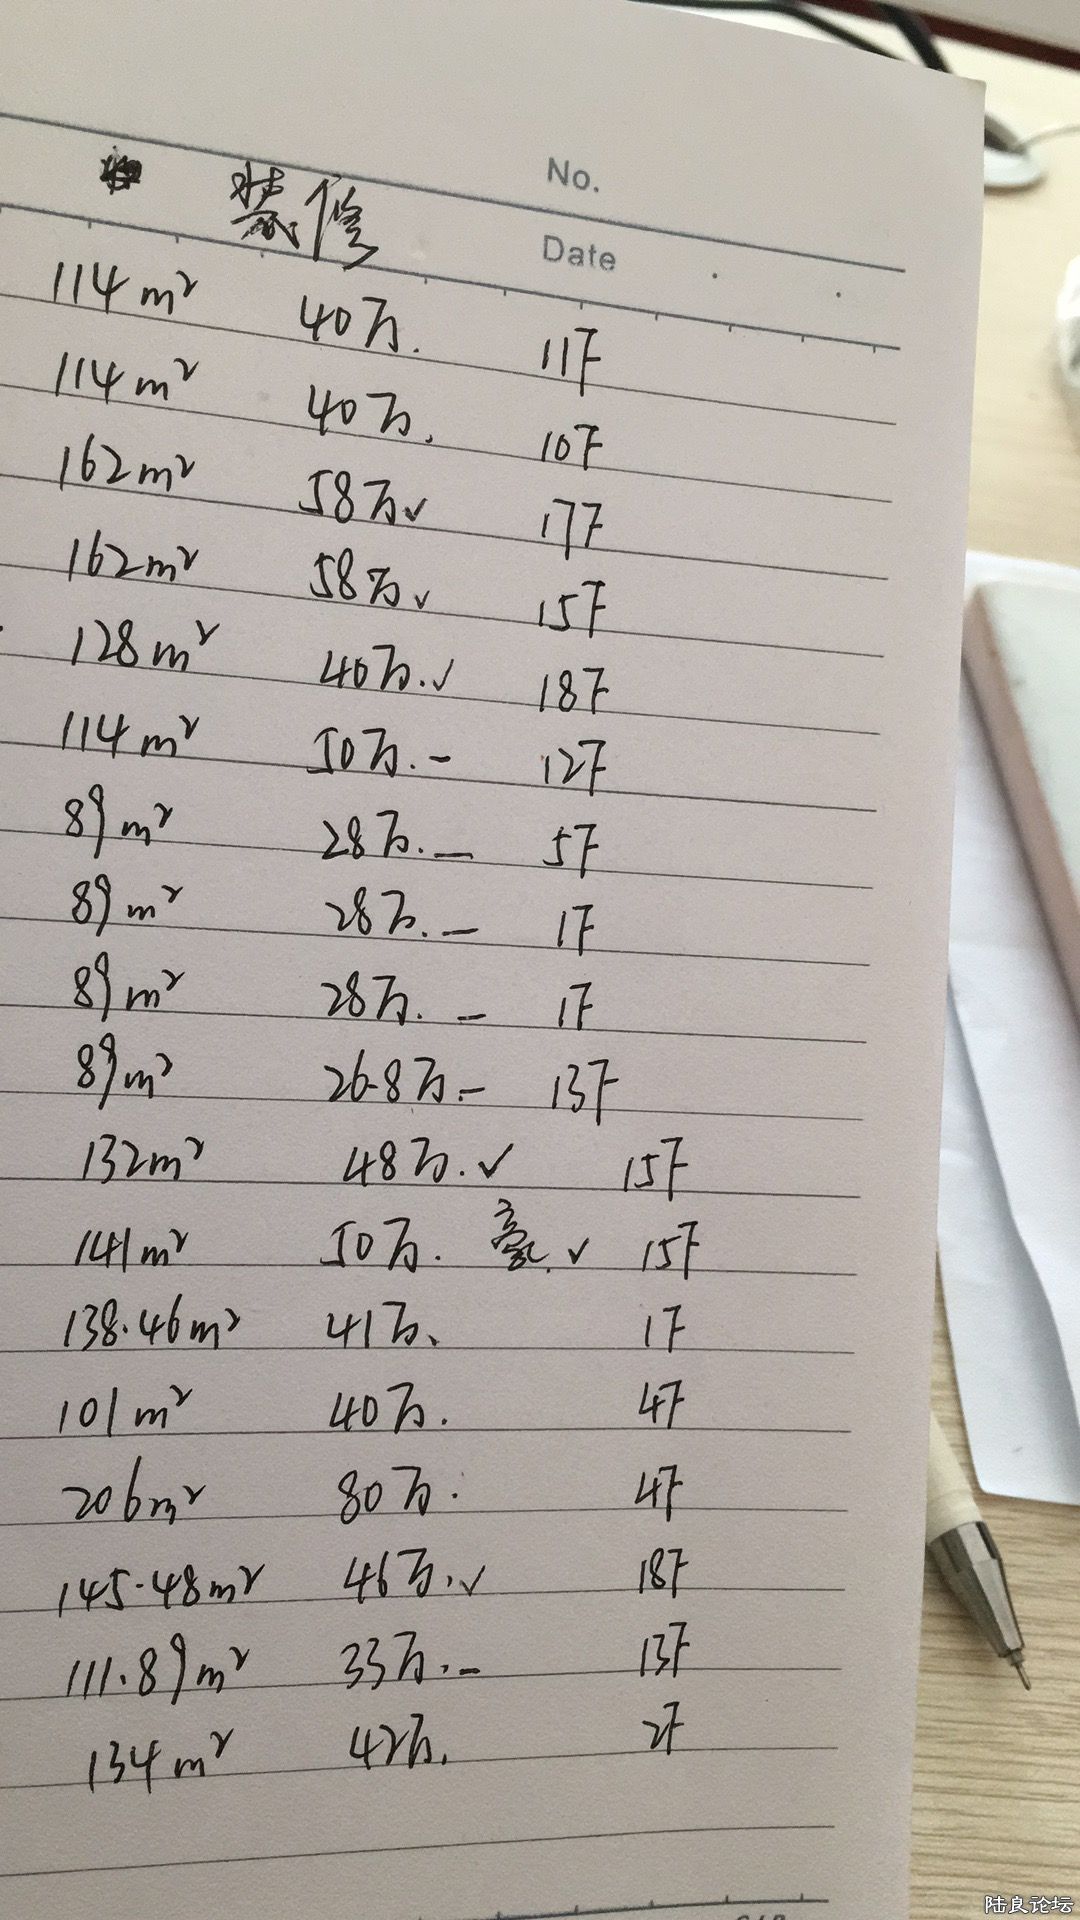 No.
装修
Date
114m² 40万. 11F
114m² 40万. 10F
162m² 58万✓ 17F
162m² 58万✓ 15F
128m² 40万.✓ 18F
114m² 50万.- 12F
89m² 28万.- 5F
89m² 28万.- 1F
89m² 28万.- 1F
89m² 26.8万.- 13F
132m² 48万.✓ 15F
141m² 50万. 豪.✓ 15F
138.46m² 41万. 1F
101m² 40万. 4F
206m² 80万. 4F
145.48m² 46万.✓ 18F
111.89m² 33万.- 13F
134m² 42万. 2F
陆良论坛